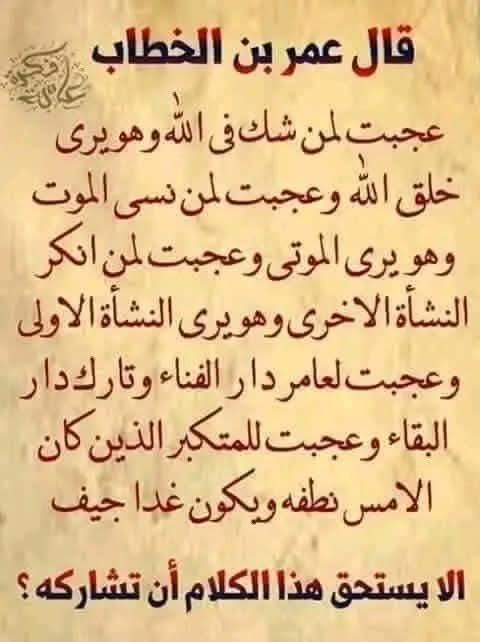 قال عمر بن الخطاب
عجبت لمن شك فى الله وهو يرى
خلق الله وعجبت لمن نسى الموت
وهو يرى الموتى وعجبت لمن انكر
النشأة الاخرى وهو يرى النشأة الاولى
وعجبت لعامر دار الفناء وتارك دار
البقاء وعجبت للمتكبر الذين كان
الامس نطفه ويكون غدا جيف
الا يستحق هذا الكلام أن تشاركه ؟